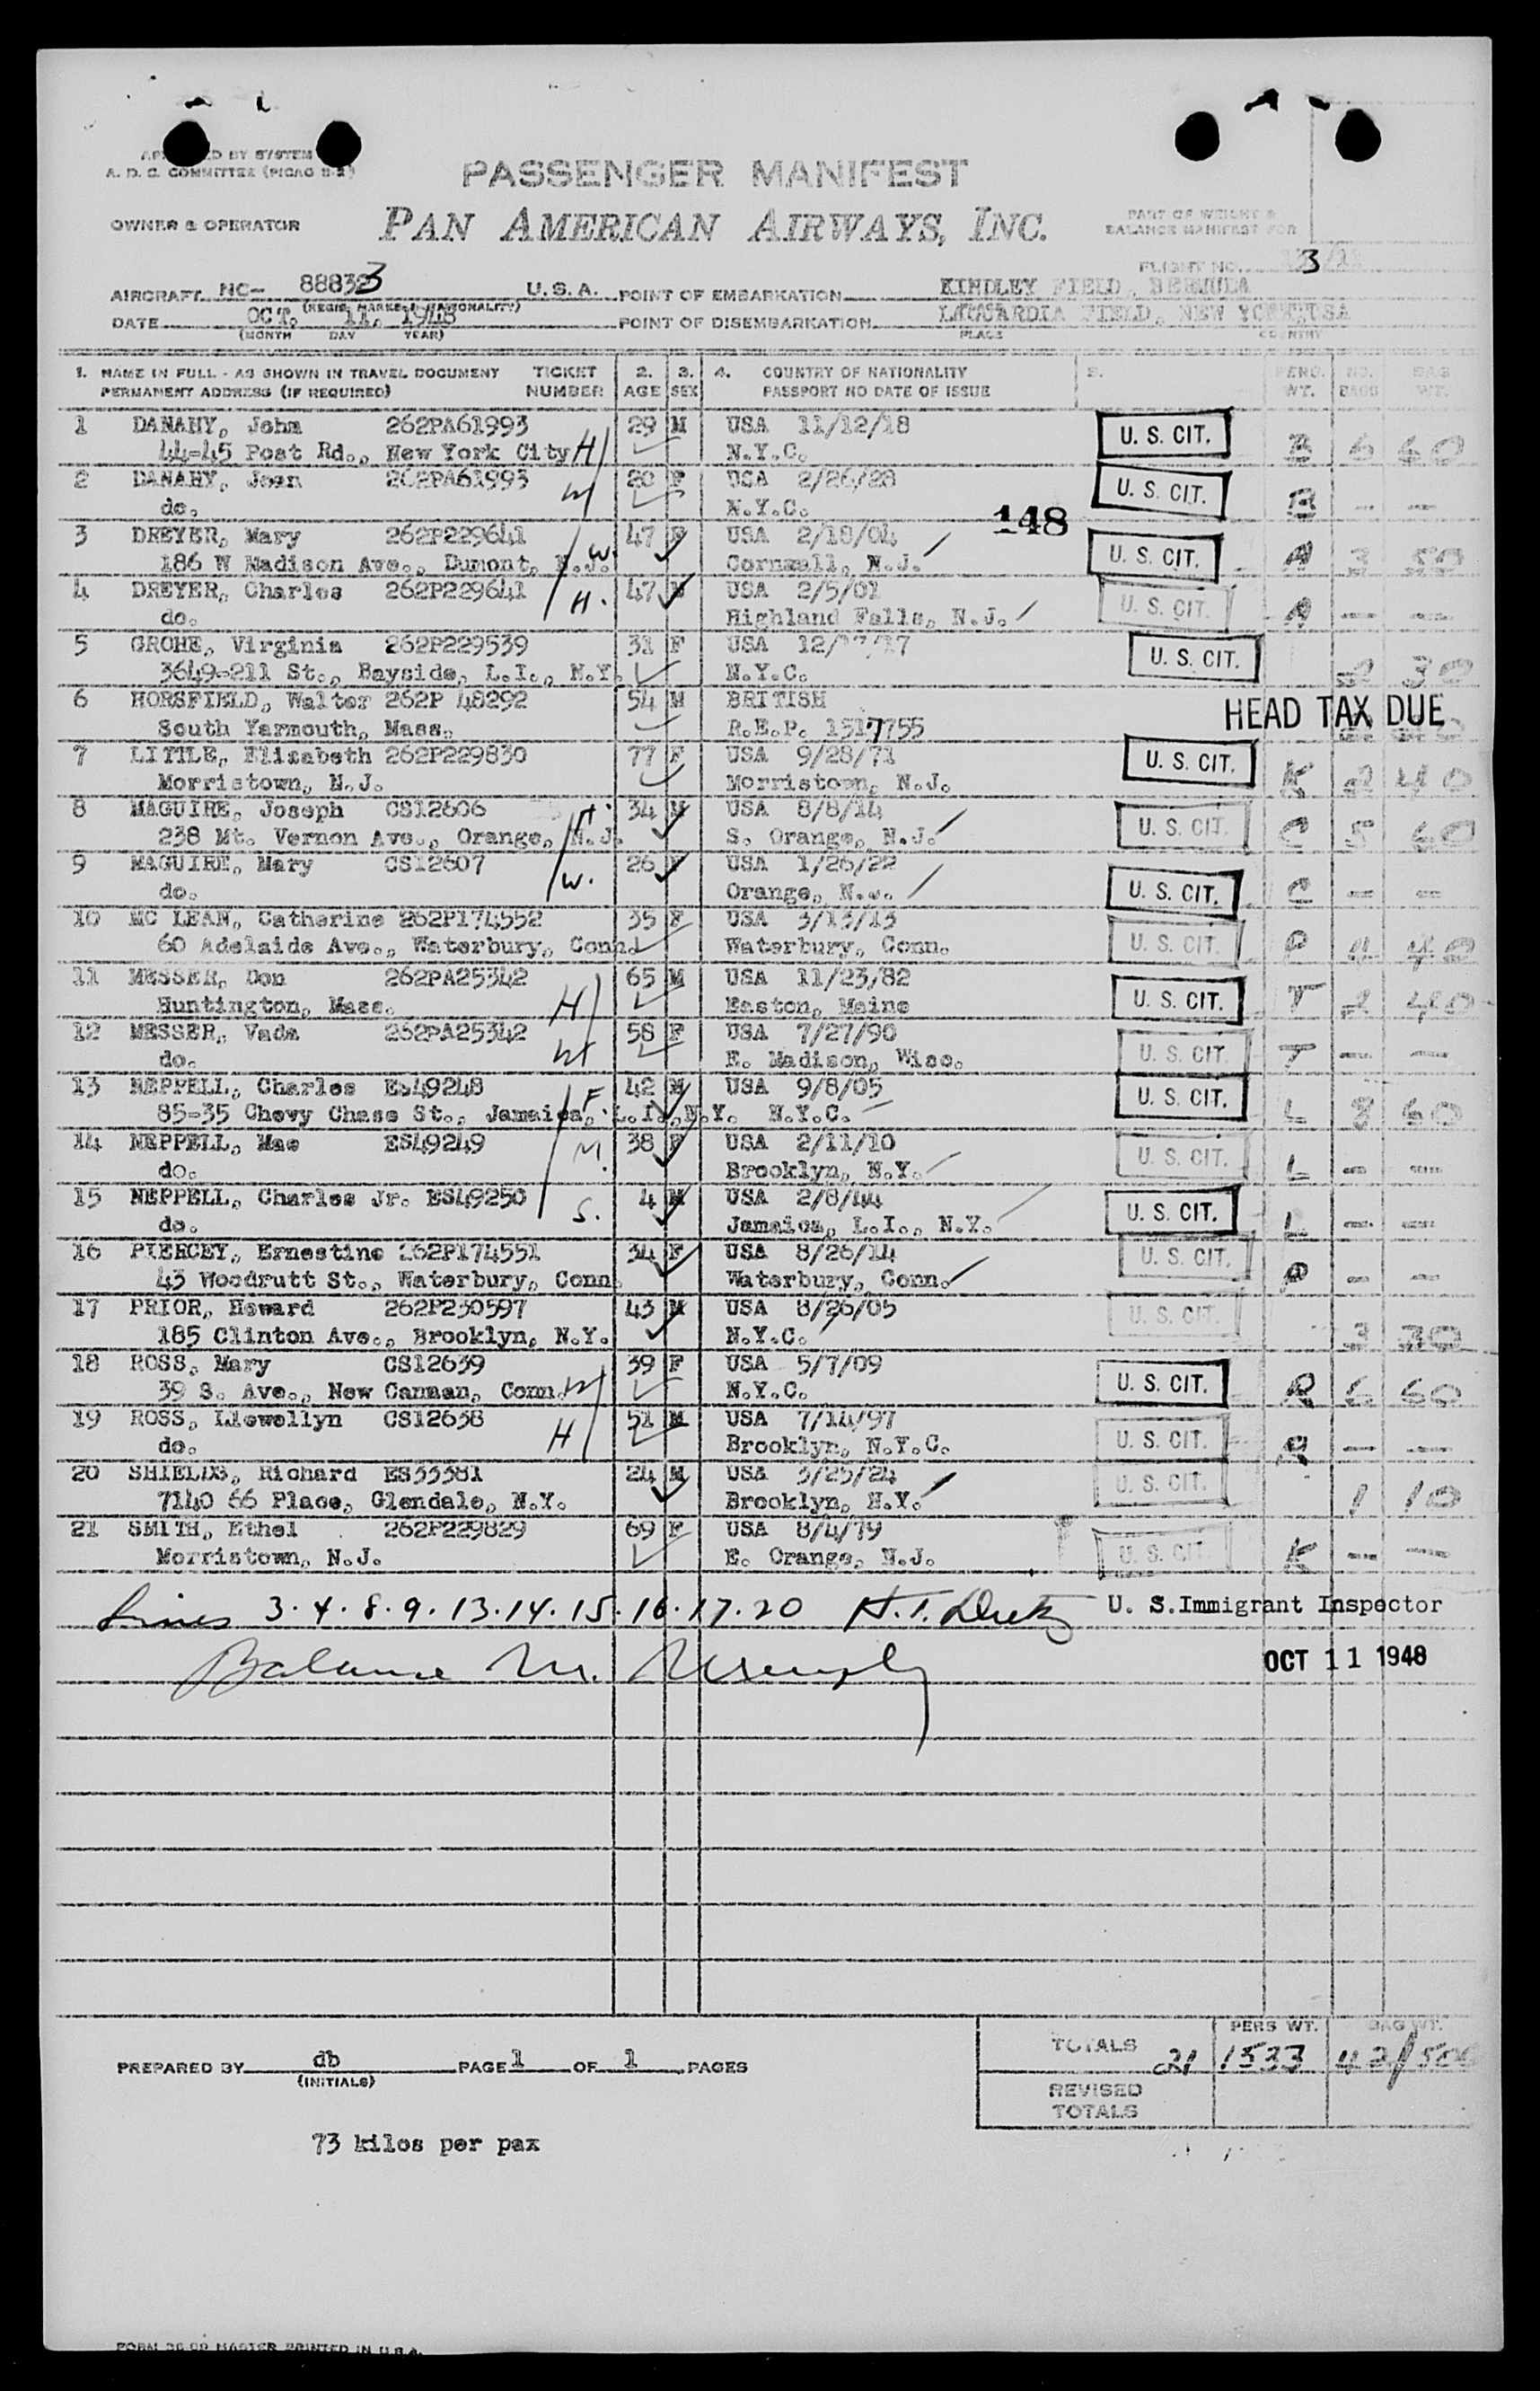 A. D. C. COMMITTEE (PICAO
PASSENGER MANIFEST
OWNER & OPERATOR PAN AMERICAN AIRWAYS, INC.
PART OF WEIGHT &
BALANCE MANIFEST FOR
FLIGHT NO. 3
AIRCRAFT NC- 88833 U.S.A. POINT OF EMBARKATION KINDLEY FIELD, BERMUDA
DATE OCT. 11, 1948 POINT OF DISEMBARKATION LAGUARDIA FIELD, NEW YORK, USA
(MONTH DAY YEAR) PLACE COUNTRY
1. NAME IN FULL - AS SHOWN IN TRAVEL DOCUMENT TICKET 2. 3. 4. COUNTRY OF NATIONALITY 5. PERS. NO. BAG
PERMANENT ADDRESS (IF REQUIRED) NUMBER AGE SEX PASSPORT NO DATE OF ISSUE WT. BAGS WT.
1 DANAHY, John 262PA61993 29 M USA 11/12/18 U. S. CIT. B 6 60
44-45 Post Rd., New York City H N.Y.C.
2 DANAHY, Jean 262PA61993 20 F USA 2/26/28 U. S. CIT. B — —
do. W N.Y.C. 148
3 DREYER, Mary 262P229641 47 F USA 2/18/04 U. S. CIT. A 3 50
186 W Madison Ave., Dumont, N.J. W. Cornwall, N.J.
4 DREYER, Charles 262P229641 47 M USA 2/5/01 U. S. CIT. A — —
do. H. Highland Falls, N.J.
5 GROHE, Virginia 262P229539 31 F USA 12/17/17 U. S. CIT. 2 30
3649-211 St., Bayside, L.I., N.Y. N.Y.C.
6 HORSFIELD, Walter 262P 48292 54 M BRITISH HEAD TAX DUE
South Yarmouth, Mass. R.E.P. 1517755
7 LITTLE, Elizabeth 262P229830 77 F USA 9/28/71 U. S. CIT. K 2 40
Morristown, N.J. Morristown, N.J.
8 MAGUIRE, Joseph CS12606 H. 34 M USA 8/8/14 U. S. CIT. C 5 60
238 Mt. Vernon Ave., Orange, N.J. S. Orange, N.J.
9 MAGUIRE, Mary CS12607 26 F USA 1/26/22 U. S. CIT. C — —
do. W. Orange, N.J.
10 MC LEAN, Catherine 262P174552 35 F USA 3/13/13 U. S. CIT. P 4 40
60 Adelaide Ave., Waterbury, Conn. Waterbury, Conn.
11 MESSER, Don 262PA25342 65 M USA 11/23/82 U. S. CIT. T 2 40
Huntington, Mass. H Easton, Maine
12 MESSER, Vada 262PA25342 58 F USA 7/27/90 U. S. CIT. T — —
do. W E. Madison, Wisc.
13 NEPPELL, Charles ES49248 42 M USA 9/8/05 U. S. CIT. L 8 60
85-35 Chevy Chase St., Jamaica, L.I., N.Y. F. N.Y.C.
14 NEPPELL, Mae ES49249 38 F USA 2/11/10 U. S. CIT. L — —
do. M. Brooklyn, N.Y.
15 NEPPELL, Charles Jr. ES49250 4 M USA 2/8/44 U. S. CIT. L — —
do. S. Jamaica, L.I., N.Y.
16 PIERCEY, Ernestine 262P174551 34 F USA 8/26/14 U. S. CIT. P — —
43 Woodrutt St., Waterbury, Conn. Waterbury, Conn.
17 PRIOR, Howard 262P230597 43 M USA 8/26/05 U. S. CIT. 3 30
185 Clinton Ave., Brooklyn, N.Y. N.Y.C.
18 ROSS, Mary CS12639 39 F USA 5/7/09 U. S. CIT. R 6 60
39 S. Ave., New Canaan, Conn. W N.Y.C.
19 ROSS, Llewellyn CS12638 51 M USA 7/14/97 U. S. CIT. R — —
do. H Brooklyn, N.Y.C.
20 SHIELDS, Richard ES33381 24 M USA 3/25/24 U. S. CIT. 1 10
7140 66 Place, Glendale, N.Y. Brooklyn, N.Y.
21 SMITH, Ethel 262P229829 69 F USA 8/4/79 U. S. CIT. K — —
Morristown, N.J. E. Orange, N.J.
Lines 3. 4. 8. 9. 13. 14. 15. 16. 17. 20 H.T. U. S. Immigrant Inspector
Balance OCT 11 1948
PERS WT. BAG WT.
TOTALS 21 1533 42/
PREPARED BY db PAGE 1 OF 1 PAGES
(INITIALS)
REVISED
TOTALS
73 kilos per pax
PRINTED IN U.S.A.